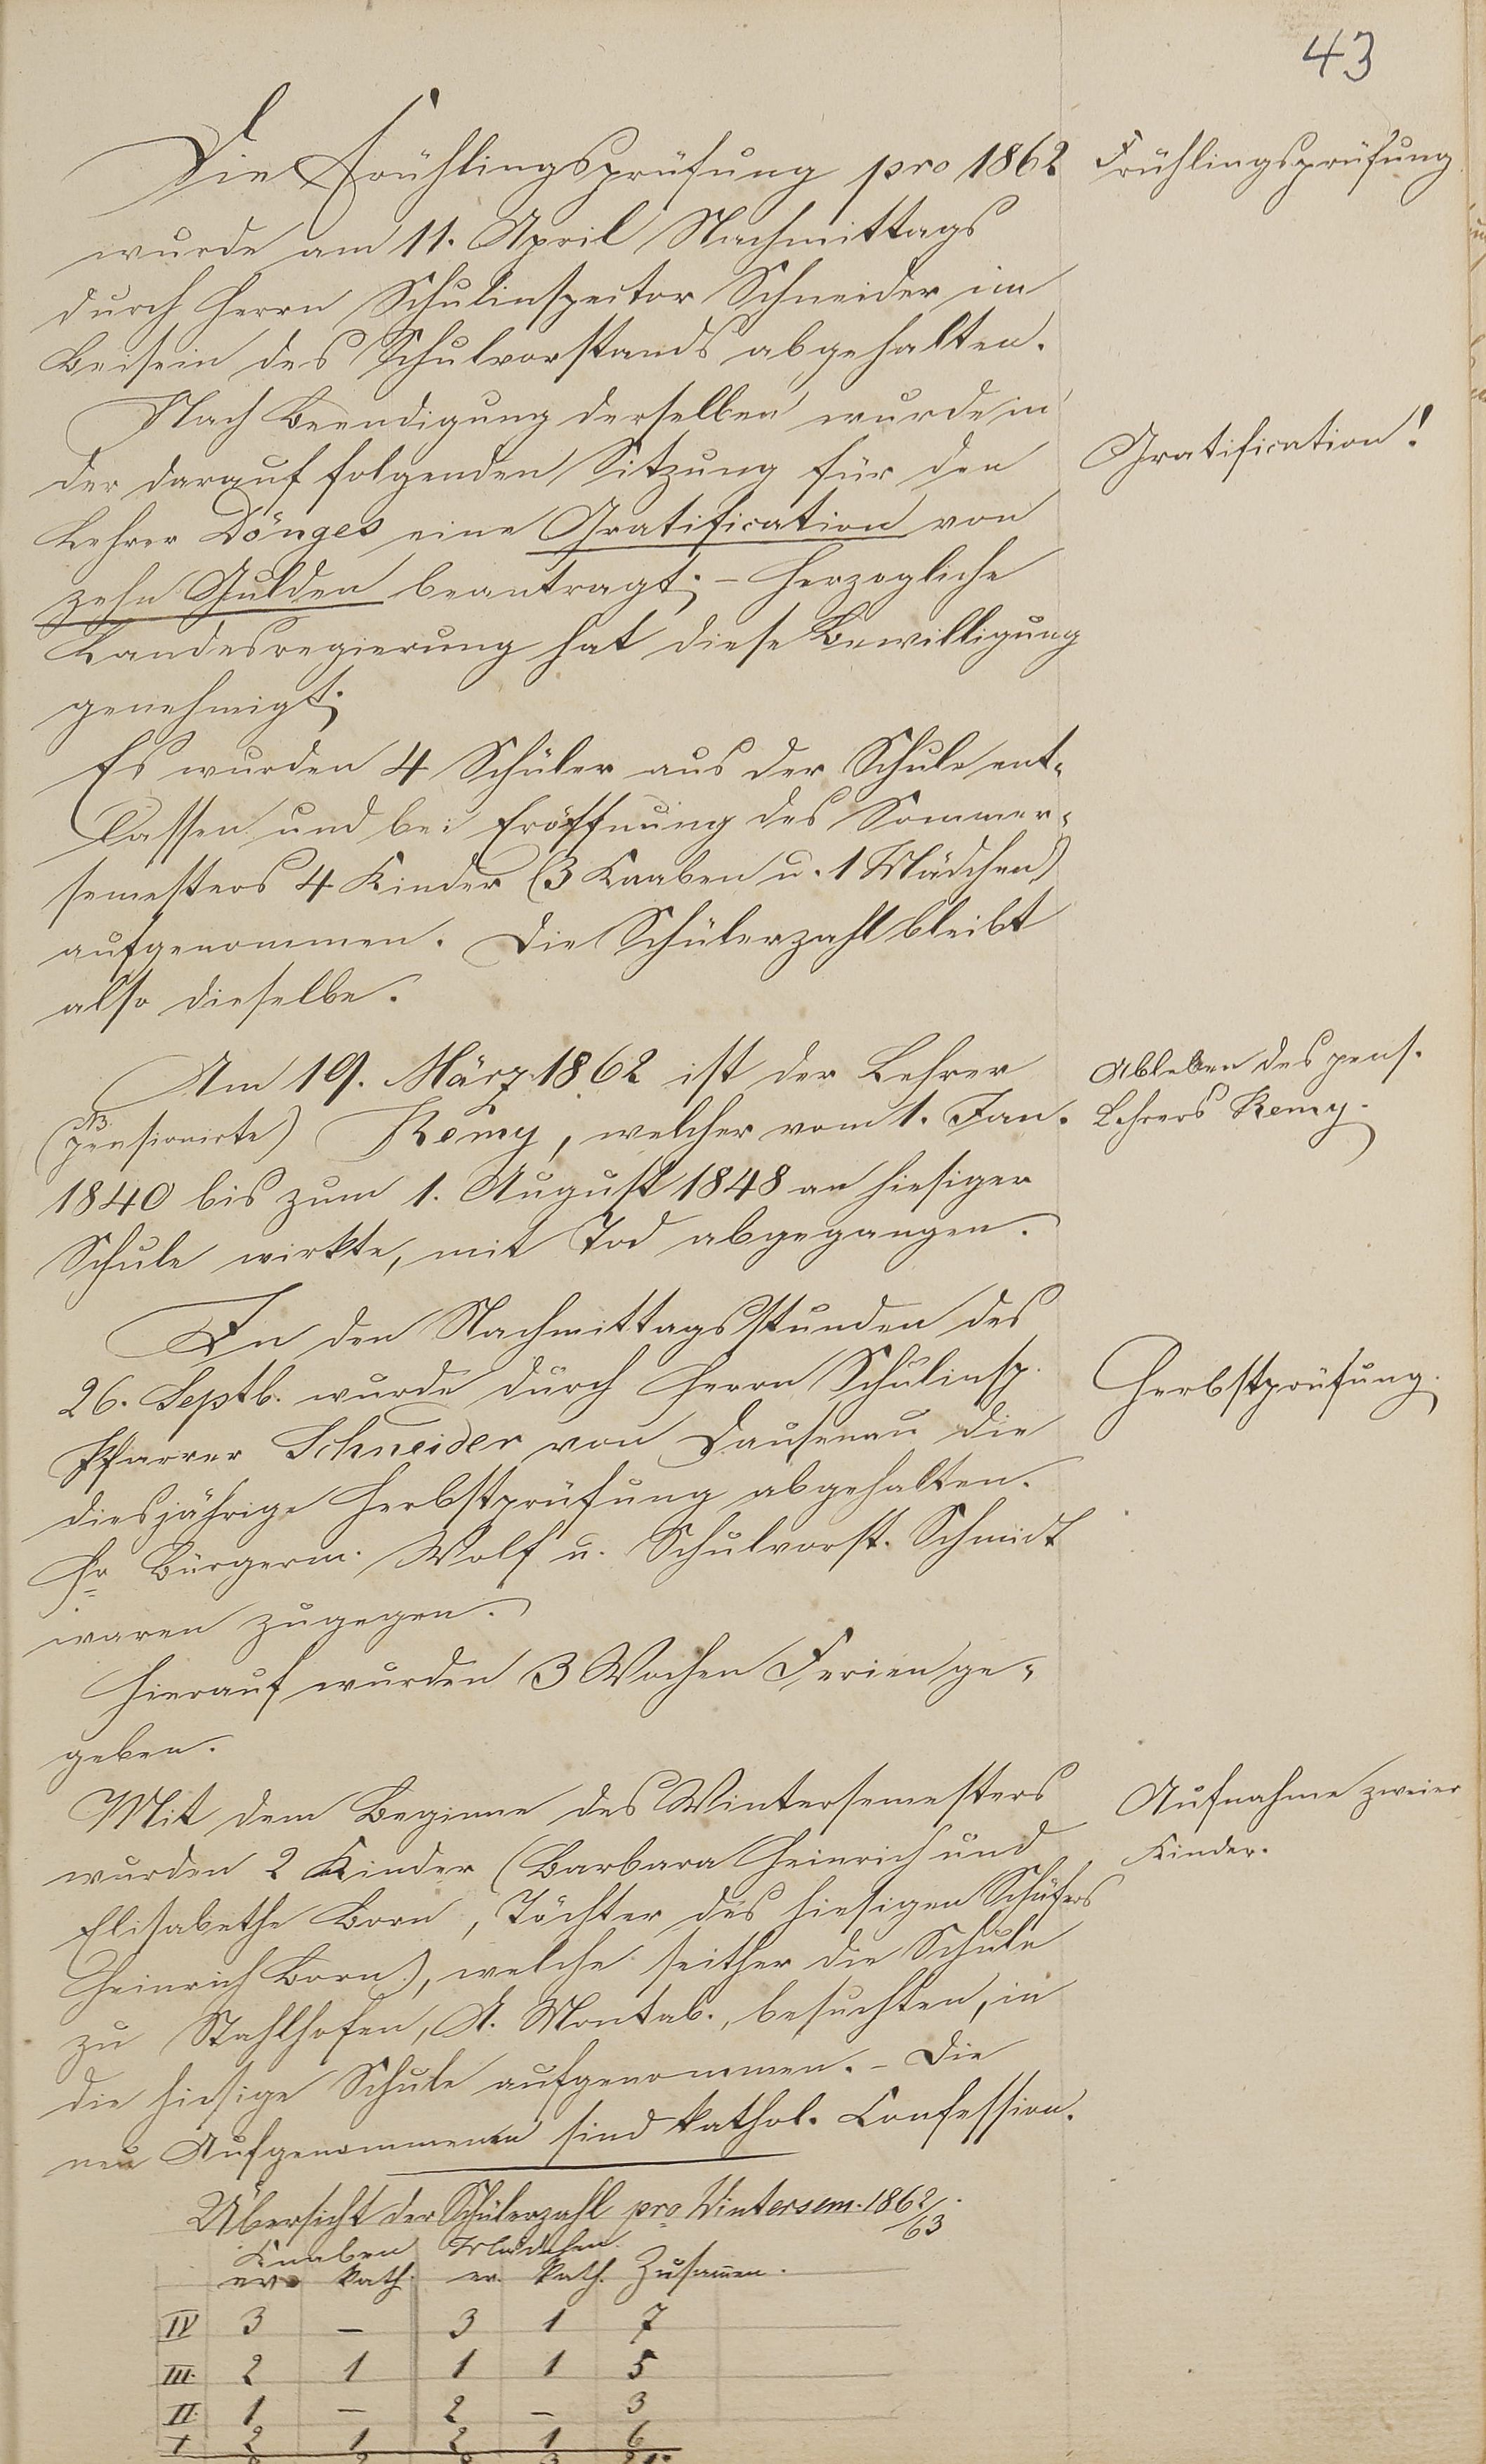 43
Die Frühlingsprüfung pro 1862
Frühlingsprüfung
wurde am 11. April Nachmittags
durch Herrn Schulinspector Schneider im
Beisein des Schulvorstands abgehalten.
Nach Beendigung derselben wurde in
Gratification!
der darauf folgenden Sitzung für den
Lehrer Dönges eine Gratification von
zehn Gulden beantragt; – Herzogliche
Landesregierung hat diese Bewilligung
genehmigt;
Es wurden 4 Schüler aus der Schule ent-
lassen und bei Eröffnung des Sommer-
semesters 4 Kinder (3 Knaben u. 1 Mädchen)
aufgenommen. Die Schülerzahl bleibt
also dieselbe.
Am 19. März 1862 ist der Lehrer
Ableben des pens.
Lehrers Remy.
(pensionirte) Remy, welcher vom 1. Jan.
1840 bis zum 1. August 1848 an hiesiger
Schule wirkte, mit Tod abgegangen.
In den Nachmittagsstunden des
26. Septb. wurde durch Herrn Schulinsp.
Herbstprüfung.
Pfarrer Schneider von Dausenau die
diesjährige Herbstprüfung abgehalten.
Hr Bürgerm. Wolf u. Schulvorst. Schmidt
waren zugegen.
Hierauf wurden 3 Wochen Ferien ge-
geben.
Mit dem Beginne des Wintersemesters
Aufnahme zweier
Kinder.
wurden 2 Kinder (Barbara Heinrich und
Elisabethe Born, Töchter des hiesigen Schäfers
Heinrich Born), welche seither die Schule
zu Stahlhofen, A. Montab., besuchten, in
die hiesige Schule aufgenommen. – Die
neu Aufgenommenen sind kathol. Confession.
Übersicht der Schülerzahl pro Wintersem. 1862/63.
Knaben Mädchen.
ev. kath. ev. kath. Zusammen.
IV 3 – 3 1 7
III. 2 1 1 1 5
II. 1 – 2 – 3
I 2 1 2 1 6